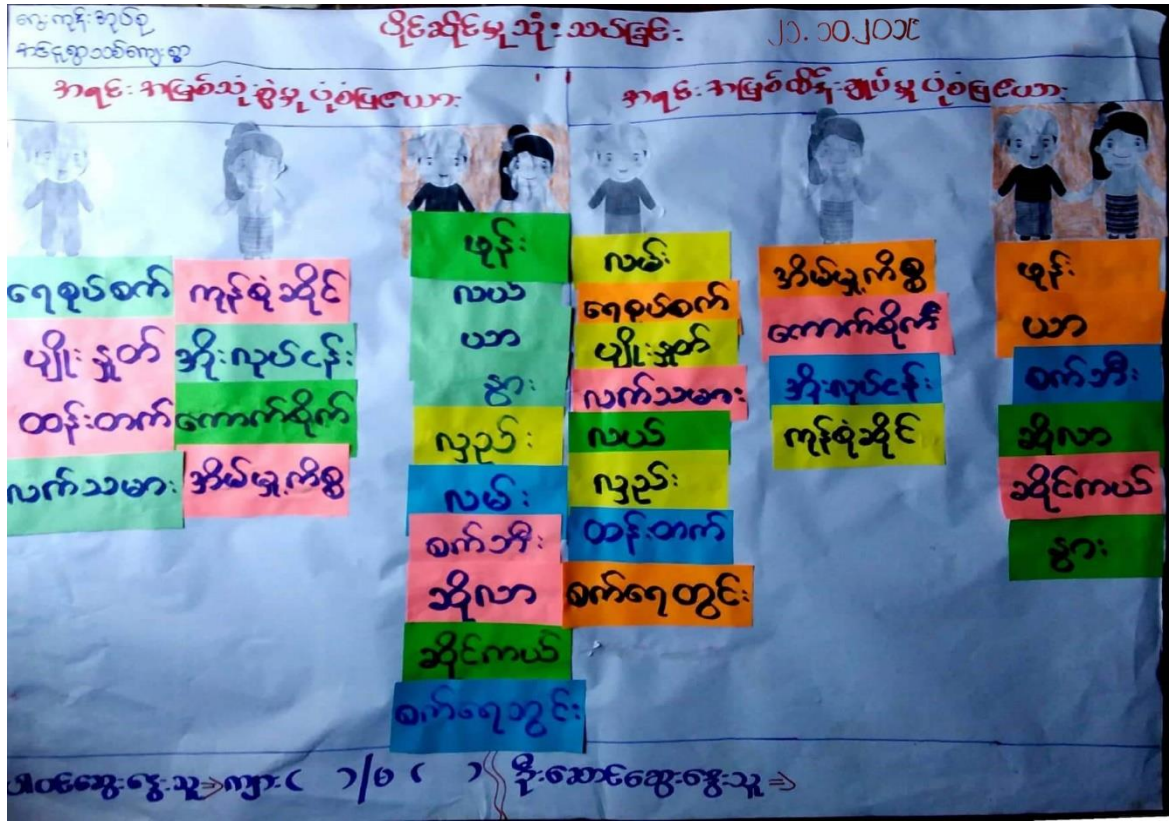 ပိုင်ဆိုင်မှုသုံးသပ်ခြင်း
၂၁.၁၀.၂၀၁၉
အရင်းအမြစ်သုံးစွဲမှုပုံစံပြဇယား
အရင်းအမြစ်ထိန်းချုပ်မှုပုံစံပြဇယား
ရေစုပ်စက်
ပျိုးနှုတ်
ထန်းတက်
လက်သမား
ကုန်စုံဆိုင်
အိုးလုပ်ငန်း
ကောက်စိုက်
အိမ်မှု့ကိစ္စ
ဖုန်း
လယ်
ယာ
နွား
လှည်း
လမ်း
စက်ဘီး
ဆိုလာ
ဆိုင်ကယ်
စက်ရေတွင်း
လမ်း
ရေစုပ်စက်
ပျိုးနှုတ်
လက်သမား
လယ်
လှည်း
ထန်းတက်
စက်ရေတွင်း
အိမ်မှု့ကိစ္စ
ကောက်စိုက်
အိုးလုပ်ငန်း
ကုန်စုံဆိုင်
ဖုန်း
ယာ
စက်ဘီး
ဆိုလာ
ဆိုင်ကယ်
နွား
ပါဝင်ဆွေးနွေးသူ⇒ကျား( )/မ ( )
ဦးဆောင်ဆွေးနွေးသူ ⇒